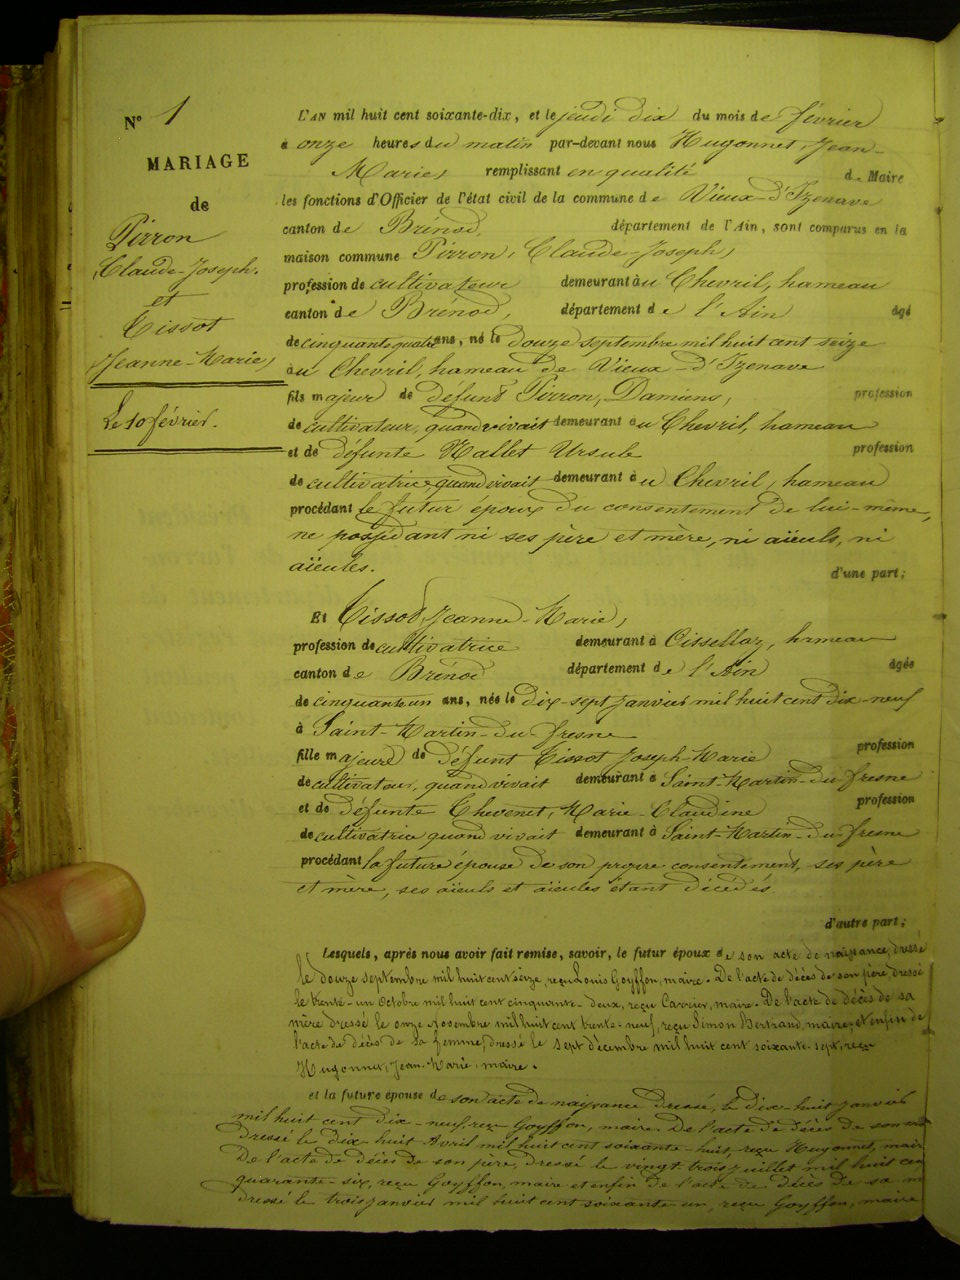 N° 1
MARIAGE
de
Pirron
Claude-Joseph.
et
Tissot
Jeanne-Marie,
Le 10 février.
L'AN mil huit cent soixante-dix, et le jeudi dix du mois de février
à onze heures du matin par-devant nous Hugonnet, Jean-
Marie, remplissant en qualité de Maire
les fonctions d'Officier de l'état civil de la commune de Vieux-d'Izenave
canton de Brénod, département de l'Ain, sont comparus en la
maison commune Pirron, Claude-Joseph,
profession de cultivateur demeurant au Chevril, hameau
canton de Brénod, département de l'Ain âgé
de cinquante quatre ans, né le douze septembre mil huit cent seize
au Chevril, hameau de Vieux-d'Izenave
fils majeur de défunt Pirron, Damiens, profession
de cultivateur, quand vivait demeurant au Chevril, hameau
et de défunte Mallet Ursule profession
de cultivatrice, quand vivait demeurant au Chevril, hameau
procédant le futur époux du consentement de lui-même,
ne possédant ni ses père et mère, ni aïeuls, ni
aïeules. d'une part;
Et Tissot, Jeanne-Marie,
profession de cultivatrice demeurant à hameau
canton de Brénod département de l'Ain âgée
de cinquante un ans, née le dix-sept janvier mil huit cent dix-neuf
à Saint-Martin-du-fresne
fille majeure de défunt Tissot Joseph-Marie profession
de cultivateur, quand vivait demeurant à Saint-Martin-du-fresne
et de défunte Chevenet, Marie-Claudine profession
de cultivatrice quand vivait demeurant à Saint-Martin-du-fresne
procédant la future épouse de son propre consentement, ses père
et mère, ses aïeuls et aïeules étant décédés
d'autre part;
Lesquels, après nous avoir fait remise, savoir, le futur époux de son acte de naissance, dressé
le douze septembre mil huit cent seize, reçu Louis Goyffon, maire. De l'acte de décès de son père dressé
le trente-un Octobre mil huit cent cinquante-deux, reçu Carrier, maire. De l'acte de décès de sa
mère dressé le onze Novembre mil huit cent trente-neuf, reçu Simon Bertrand, maire, et enfin de
l'acte de décès de sa femme, dressé le sept décembre mil huit cent soixante-sept, reçu
Hugonnet, Jean-Marie, maire.
et la future épouse de son acte de nayssance dressé, le dix-huit janvier
mil huit cent dix-neuf, reçu Goyffon, maire. De l'acte de décès de son
Dressé le dix-huit Avril mil huit cent soixante-huit, reçu Hugonnet, mair
De l'acte de décès de son père, dressé le vingt trois juillet mil huit cen
quarante-six, reçu Goyffon, maire et enfin de l'acte de décès de sa m
dressé le trois janvier mil huit cent soixante-un, reçu Goyffon, maire